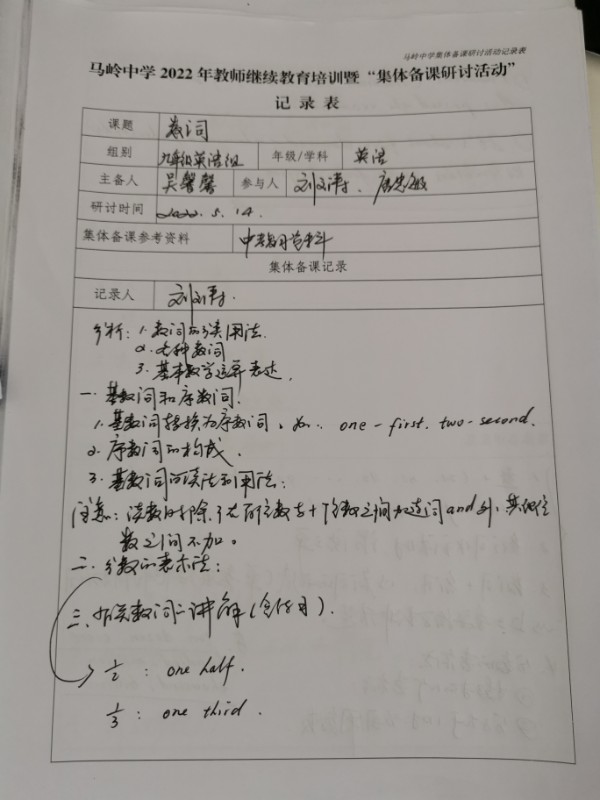 马岭中学集体备课研讨活动记录表
马岭中学 2022 年教师继续教育培训暨“集体备课研讨活动”
记 录 表
课题 数词
组别 九年级英语组 年级/学科 英语
主备人 吴馨馨 参与人
研讨时间 2022.5.14.
集体备课参考资料
集体备课记录
记录人
分析：1. 数词的分类用法.
2. 各种数词
3. 基本数学运算表达.
一. 基数词和序数词.
1. 基数词转换为序数词，如：one-first. two-second.
2. 序数词的构成.
3. 基数词的读法和用法：
注意：读数时除了在百位数与十位数之间加连词and外，其他位
数之间不加。
二. 分数的表示法：
三. 相关数词讲解(含任务).
1/2 : one half.
1/3 : one third.